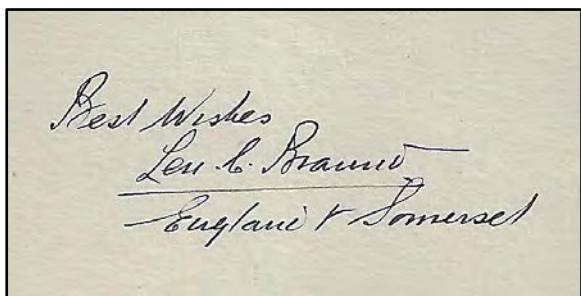 Best Wishes
Len C. Braund
England & Somerset